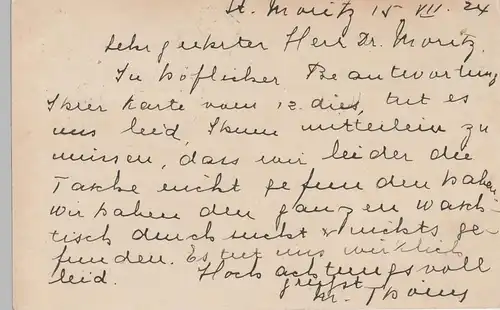 St. Moritz 15 VII. 24
Sehr geehrter Herr Dr. Moritz.
In höflicher Beantwortung
Ihrer Karte vom 12. dies, tut es
uns leid, Ihnen mitteilein zu
müssen, dass wir leider die
Tasche nicht gefunden haben
wir haben den ganzen Wasch-
tisch durchsucht & nichts ge-
funden. Es tut uns wirklich
leid. Hochachtungsvoll
grüsst
M.